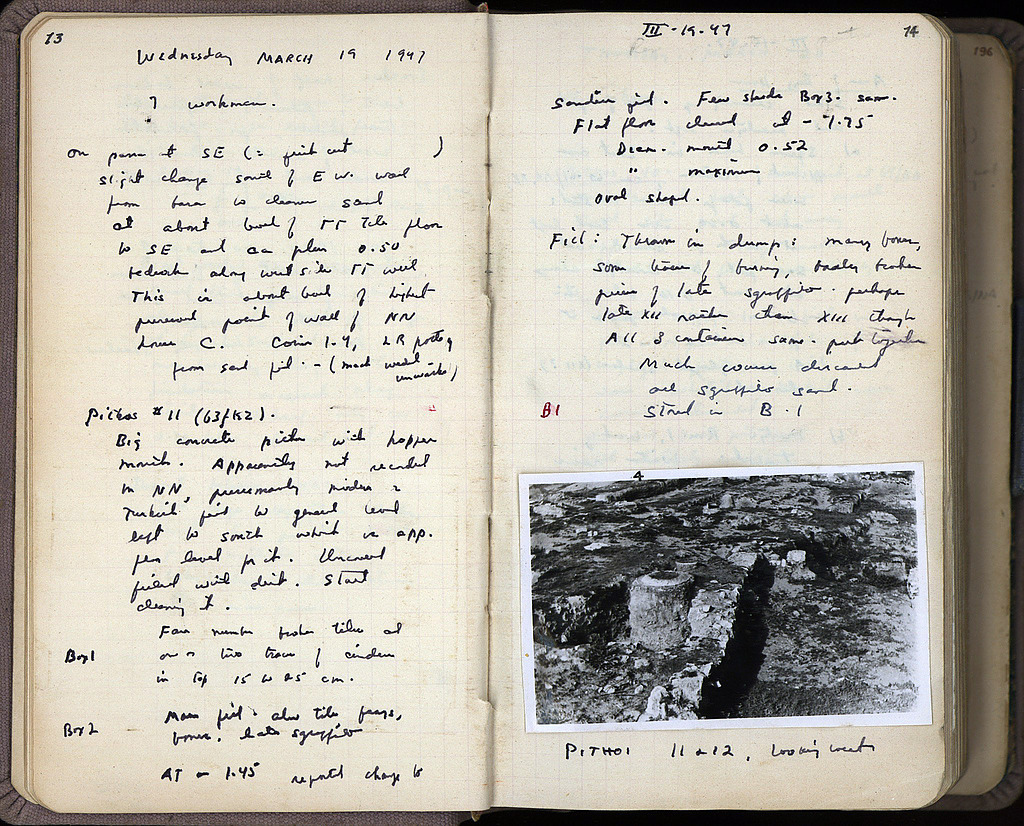 73
Wednesday MARCH 19 1947
7 workmen.
On SE (= )
slight change south of E W. wall
from to cleaner sand
at about level of TT Tile floor
to SE and 0.50
along west side TT wall
This is about level of highest
preserved point of wall of NN
House C. Coins 1-4, LR
from sand fill - (much
unworked)
Pithos #11 (63/KZ).
Big concrete pithos with hopper
mouth. Apparently not recorded
in NN, presumably modern &
Turkish fill to general level
left to south which is app.
level for it. Uncovered
filled with dirt. Start
cleaning it.
Fair number broken tiles and
Box 1 one or two traces of cinders
in top 15 to 25 cm.
Main fill - also tile frags,
Box 2 bones, late sgraffito
AT - 1.45 reported change to
III-19-47 74
sandier fill. Few sherds Box 3. same.
Flat floor cleared at - 1.75
Diam. mouth 0.52
" maximum
oval shaped.
Fill: Thrown in dump: many bones,
some traces of burning, badly broken
pieces of late sgraffito - perhaps
late XII rather than XIII though
All 3 containers same - put together
Much coarse discarded
all sgraffito saved.
B1 Stored in B.1
4
PITHOI 11 & 12, looking west
196